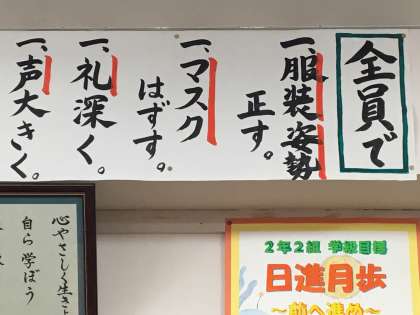 全員で
一、服装姿勢
正す。
一、マスク
はずす。
一、礼深く。
一、声大きく。
心やさしく生きよ
自ら学ぼう
2年2組 学級目標
日進月歩
～前へ進め～